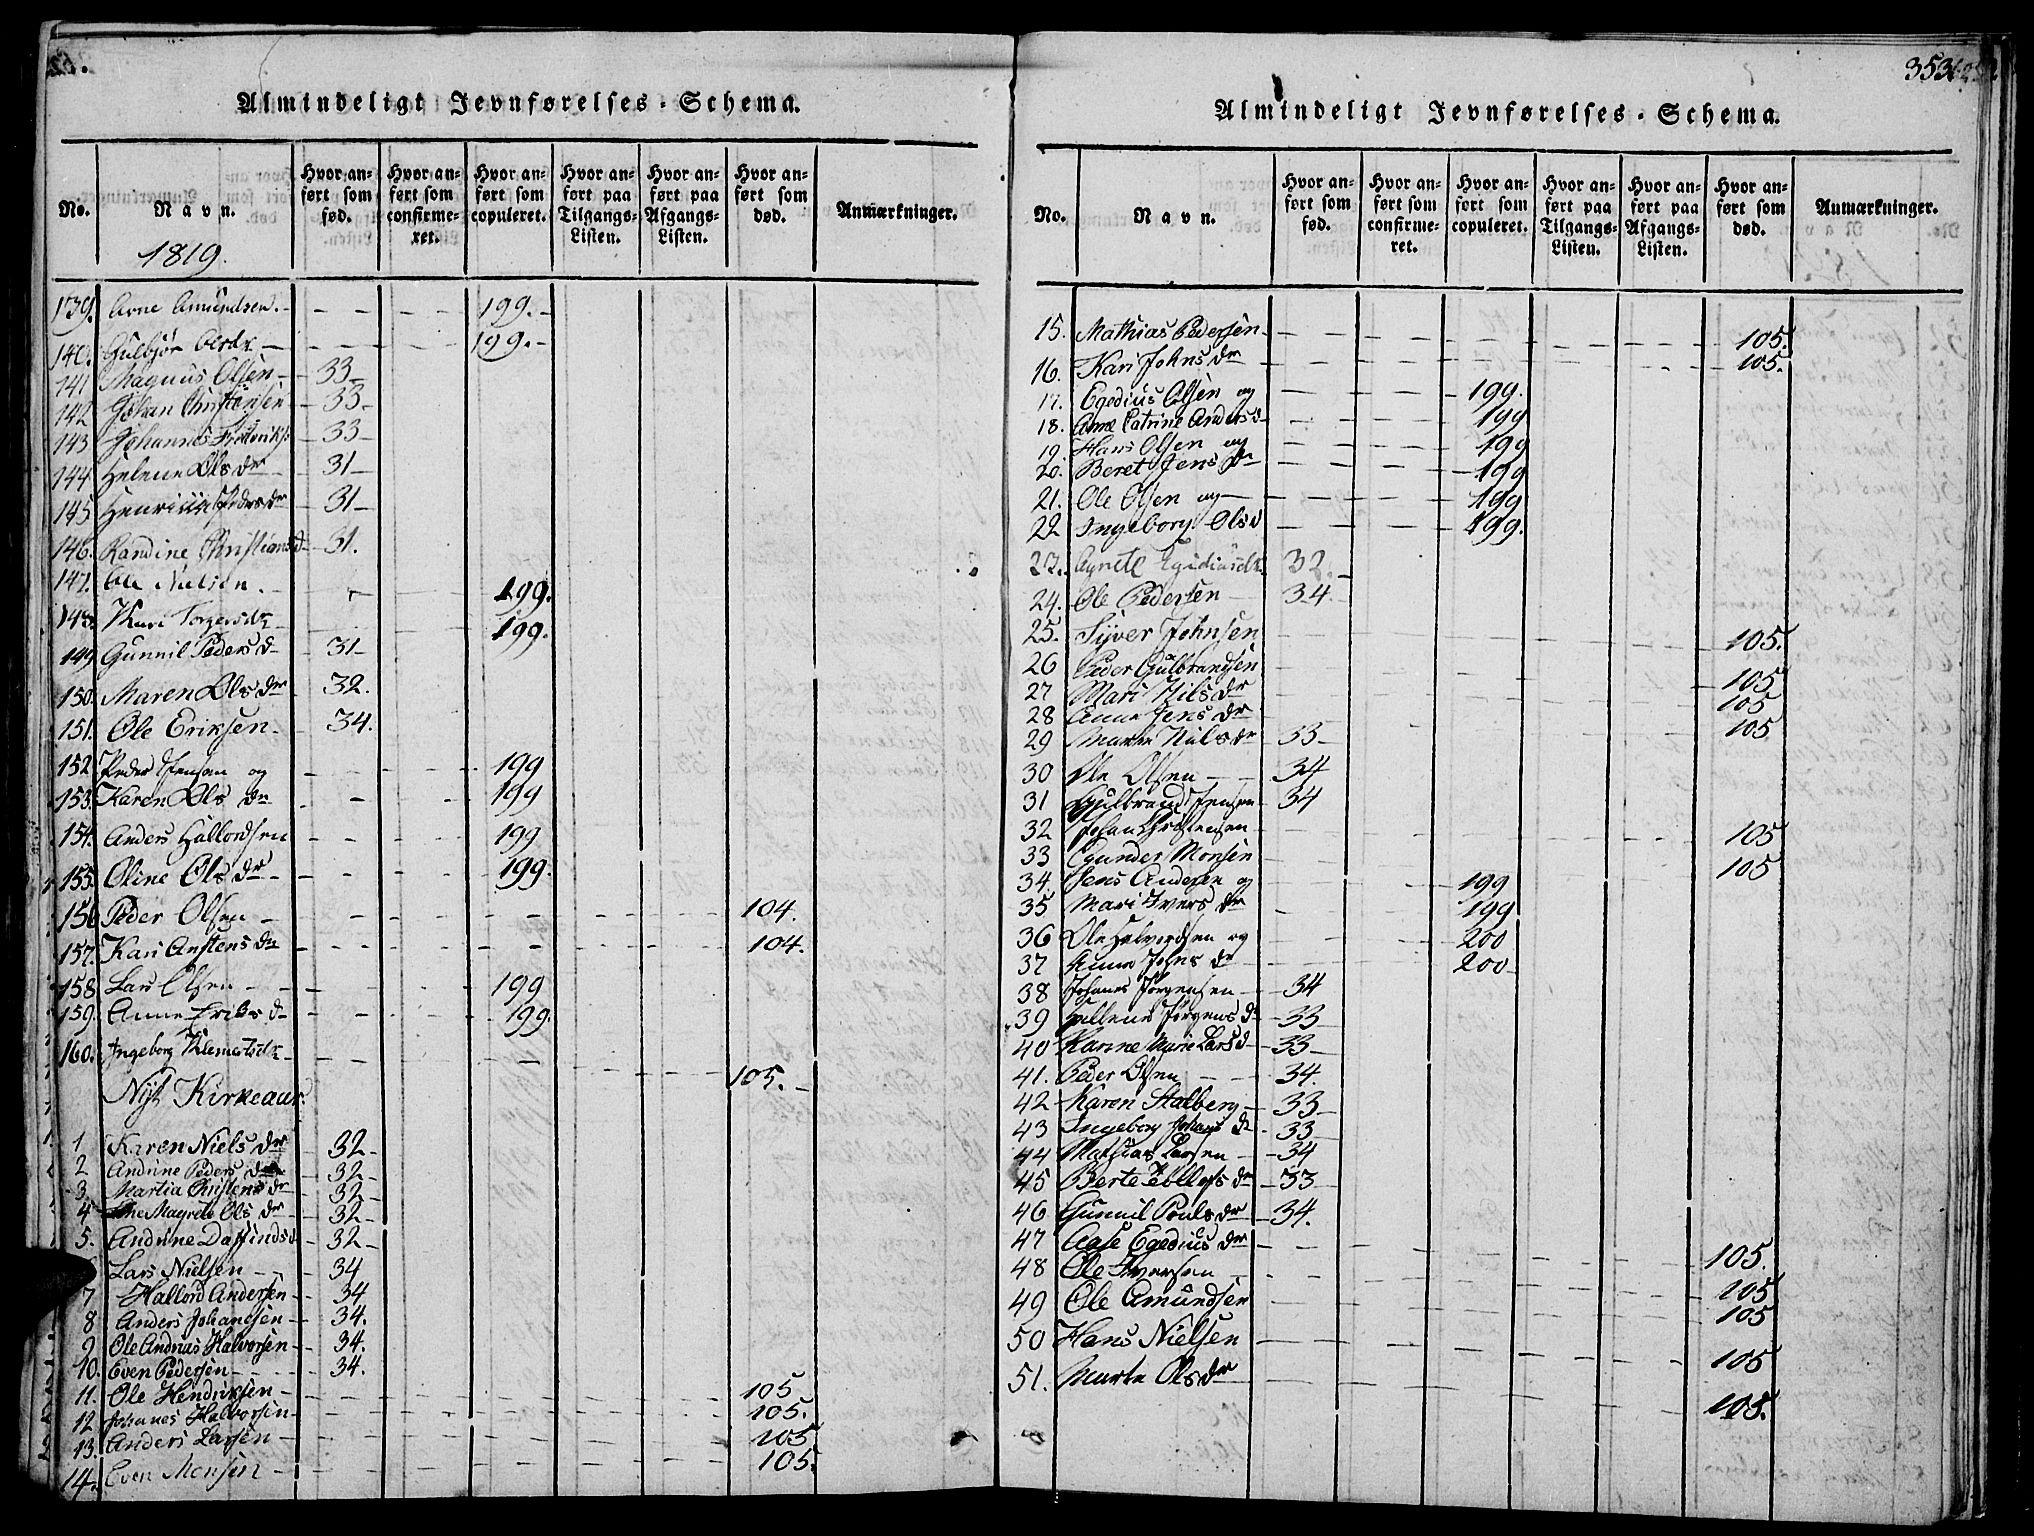 Almindeligt Jevnførelses-Schema.
No. Navn. Hvor anført som fød. Hvor anført som confirmeret. Hvor anført som copuleret. Hvor anført paa Tilgangs-Listen. Hvor anført paa Afgangs-Listen. Hvor anført som død. Anmærkninger.
1819.
139. Arne Amundsen. 199.
140. Gulbjør 199.
141 Magnus Olsen 33
142 Johan Christensen 33
143 Johannes Frederiks: 33
144 Helene Ols dr 31
145 Henrikke Peders dr 31
146. Randine Christians d 31.
147. Ole Nielsen. 199.
148. Kari Torgersdr 199.
149 Gunnil Peders d 31
150. Maren Ols dr 32.
151. Ole Eriksen 34.
152 Peder Jensen og 199
153. Karen Ols dr 199
154. Anders Hallordsen 199
155. Oline Ols dr 199.
156 Peder Olsen 104.
157. Kari Anstens dr 104.
158 Lars Olsen 199
159. Anne Eriks d 199.
160. Ingeborg Klemetsdr 105.
Nyt Kirkeaar.
1 Karen Niels dr 32
2 Andrine Peders d 32
3. Martia Christens dr 32
4 Ane Magrete Ols dr 32
5. Andrine Daffinds d 32
Lars Nielsen 34
7 Hallord Andersen 34
8 Anders Johannesen 34.
9 Ole Andreas Halvorsen 34.
10. Even Pedersen 34.
11. Ole Hendriksen 105
12 Johannes Halvorsen 105.
13. Anders Larsen 105
14. Even Monsen 105.
353.
Almindeligt Jevnførelses-Schema.
No. Navn. Hvor anført som fød. Hvor anført som confirmeret. Hvor anført som copuleret. Hvor anført paa Tilgangs-Listen. Hvor anført paa Afgangs-Listen. Hvor anført som død. Anmærkninger.
15. Mathias Pedersen 105.
16. Kari Johns dr 105.
17. Egedius Olsen og 199.
18. Ane Catrine Anders d 199
19. Hans Olsen og 199
20. Beret Jens dr 199
21. Ole Olsen og 199
22 Ingeborg Ols d 199.
23. Agnete Egidiusdr. 33.
24. Ole Pedersen 34.
25. Syver Johnsen 105.
26 Peder Gulbrandsen 105
27 Mari Nils dr 105
28 Anne Jens dr 105
29 Maren Nils dr 33
30 Ole Olsen 34
31 Gulbrand Jensen 34
32 Johan Christensen 105
33 Gunder Monsen 105
34. Jens Andersen og 199
35 Mari Ivers dr 199
36 Ole Halvordsen og 200
37 Anne Johns dr 200
38 Johanes Jørgensen 34
39 Hellene Jørgens dr 33
40 Karine Marie Lars d 33
41. Peder Olsen 34.
42 Karen Stalberg 33
43 Ingeborg Johans dr 33
44 Mathias Larsen 34
45 Berte Tollefs dr 33
46 Gunnil Pouls dr 34.
47 Aase Egedius dr 105.
48 Ole Iversen 105
49 Ole Amundsen 105
50 Hans Nielsen 105
51. Marte Ols dr 105.